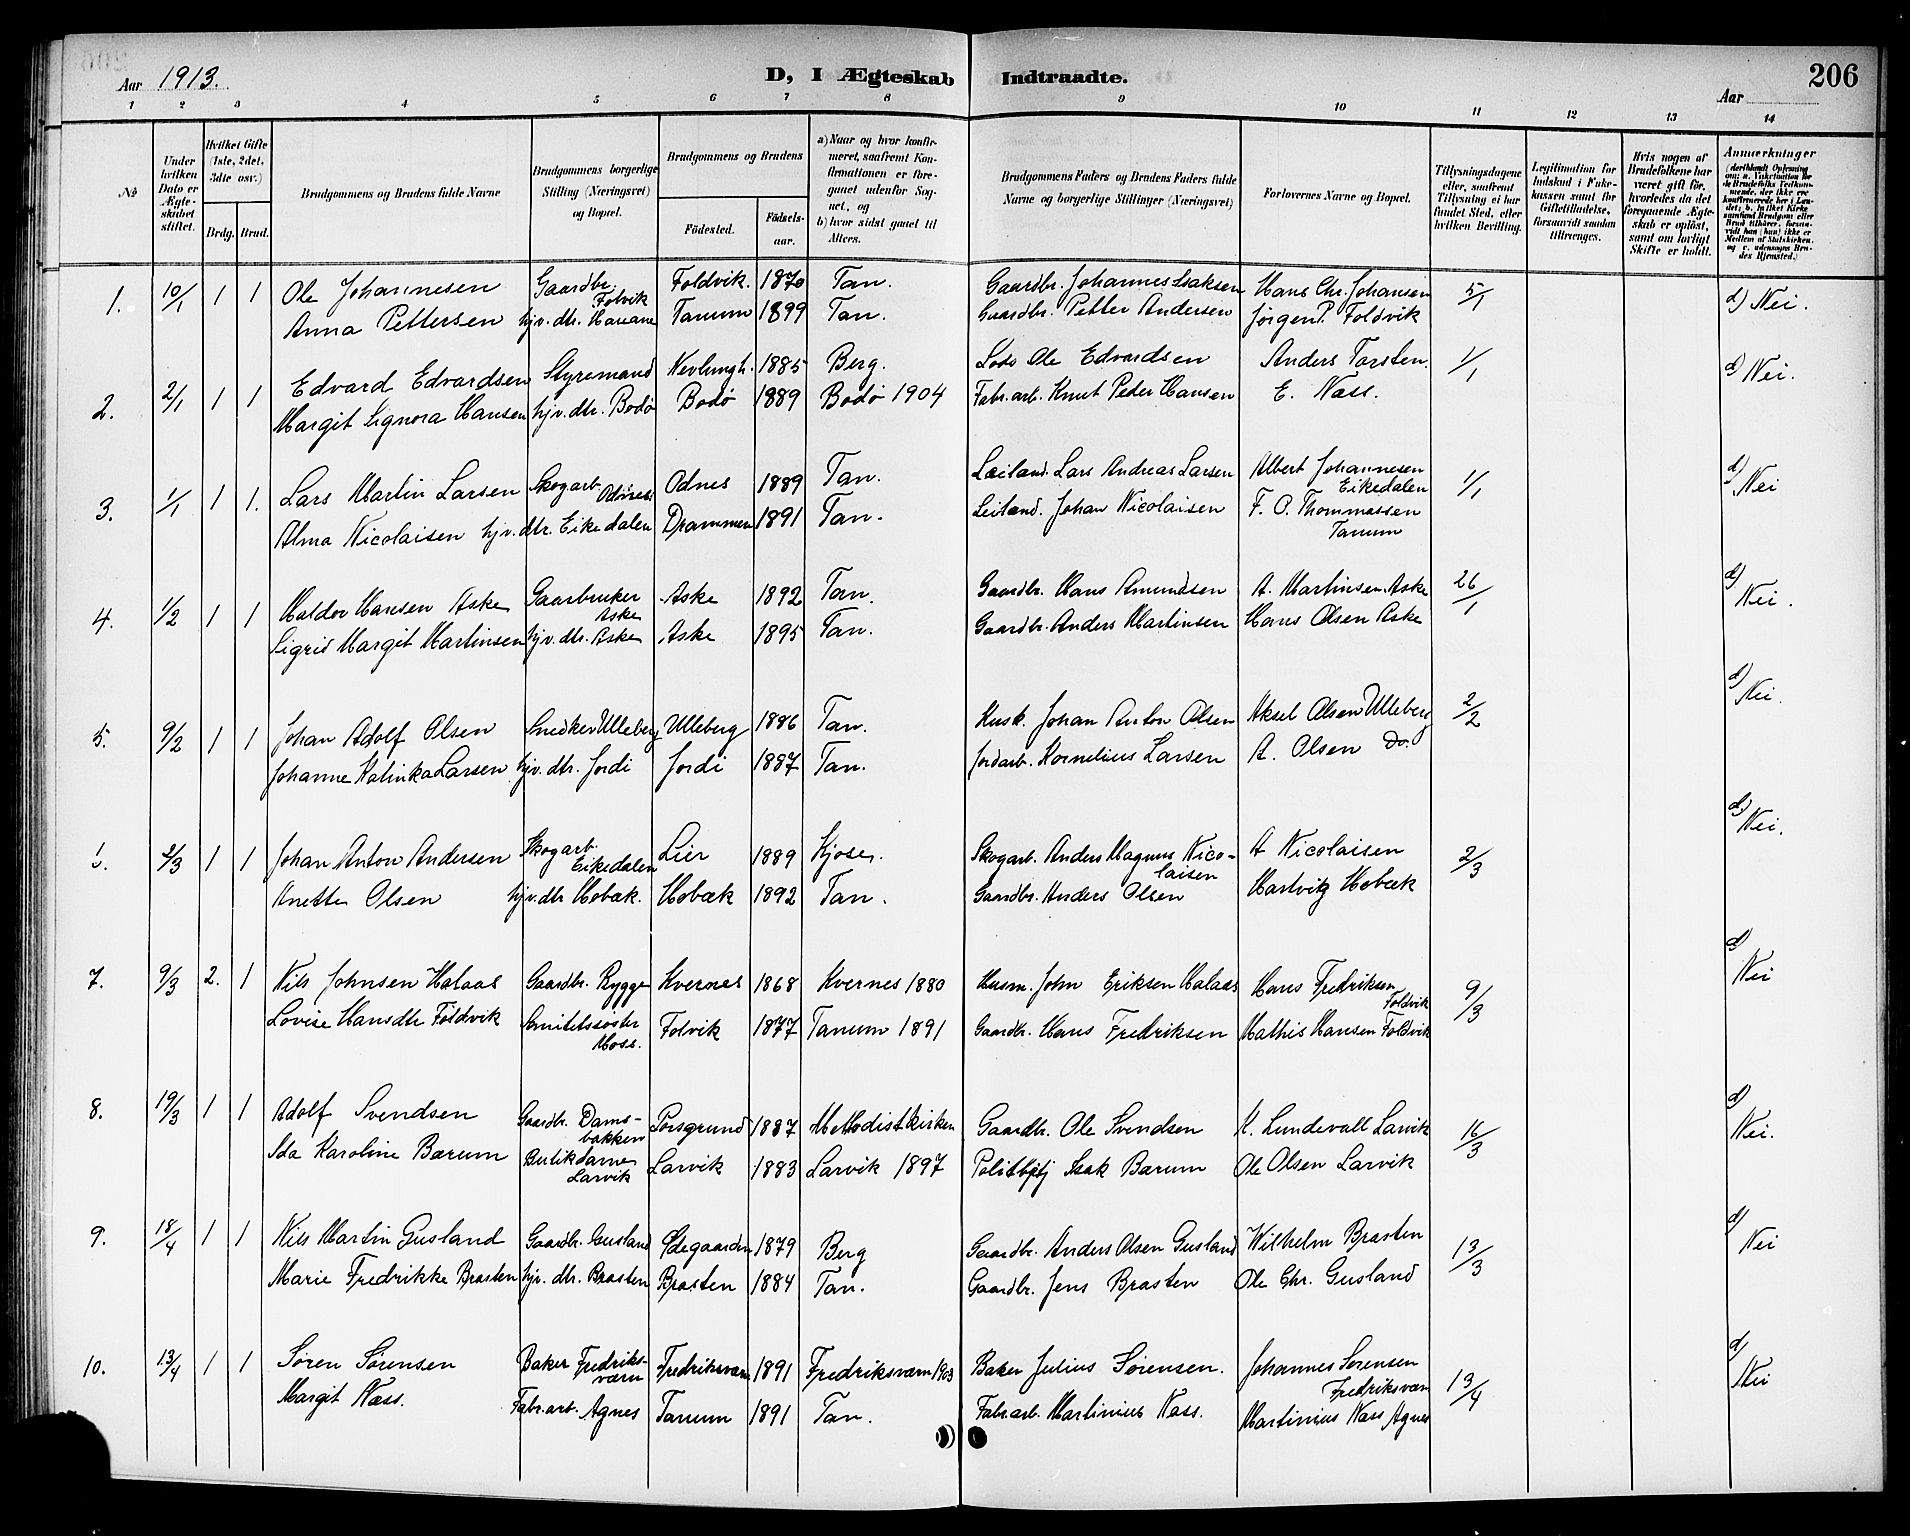 Aar 1913. D, I Ægteskab Indtraadte. Aar 206
1 2 3 4 5 6 7 8 9 10 11 12 13 14
No
Under hvilken Dato er Ægteskabet stiftet.
Hvilket Gifte (1ste, 2det, 3die osv.)
Brdg. Brud.
Brudgommens og Brudens fulde Navne
Brudgommens borgerlige Stilling (Næringsvei) og Bopæl.
Brudgommens og Brudens
Fødested. Fødselsaar.
a) Naar og hvor konfirmeret, saafremt Konfirmationen er foregaaet udenfor Sognet, og
b) hvor sidst gaaet til Alters.
Brudgommens Faders og Brudens Faders fulde Navne og borgerlige Stillinger (Næringsvei)
Forlovernes Navne og Bopæl.
Tillysningsdagene eller, saafremt Tillysning ei har fundet Sted, efter hvilken Bevilling.
Legitimation for Indskud i Enkekassen samt for Giftetilladelse, forsaavidt saadan tiltrænges.
Hvis nogen af Brudefolkene har været gift før, hvorledes da det foregaaende Ægteskab er opløst, samt om lovligt Skifte er holdt.
Anmærkninger
1. 10/1 1 1 Ole Johannesen Gaardbr. Folvik Foldvik. 1870 Tan. Gaardbr. Johannes Isaksen Hans Chr. Johansen 5/1 d) Nei.
Anna Pettersen hjv. dtr. Havane Tanum 1899 Tan. Gaardbr. Petter Andersen Jørgen P. Foldvik
2. 2/1 1 1 Edvard Edvardsen Styrmand Nevlungh. 1885 Berg. Lods Ole Edvardsen Anders Torsten. 1/1 d) Nei.
Margit Signora Hansen hjv. dtr. Bodø Bodø 1889 Bodø 1904 Fabr. arb. Knut Peder Hansen E. Nass.
3. 1/1 1 1. Lars Martin Larsen Skogarb. Odnes Odnes 1889 Tan. Leiland. Lars Andreas Larsen Albert Johannesen Eikedalen 1/1 d) Nei
Alma Nicolaisen hjv. dtr. Eikedalen Drammen 1891 Tan. Leiland. Johan Nicolaisen F. O. Thommassen Tanum
4. 1/2 1 1 Haldor Hansen Aske Gaarbruker Aske Aske 1892 Tan. Gaardbr. Hans Amundsen A. Martinsen Aske 26/1 d) Nei.
Sigrid Margit Martinsen hjv. dtr. Aske Aske 1895 Tan. Gaardbr. Anders Martinsen Hans Olsen Aske
5. 9/2 1 1 Johan Adolf Olsen Snedker Ulleberg Ulleberg 1886 Tan. Husk. Johan Anton Olsen Aksel Olsen Ulleberg 2/2 d) Nei.
Johanne Kalinka Larsen hjv. dtr. Jordi Jordi 1887 Tan. Jordarb. Kornelius Larsen A. Olsen Do.
2/3 1 1 Johan Anton Andersen Skogarb. Eikedalen Lier 1889 Kjose. Skogarb. Anders Magnus Nicolaisen A Nicolaisen 2/3 d) Nei.
Anette Olsen hjv. dtr Hobæk. Hobæk 1892 Tan. Gaardbr. Anders Olsen Hartvig Hobæk
7. 9/3 2. 1 Nils Johnsen Halaas Gaardbr. Rygge Kvernes 1868 Kvernes 1880 Husm. John Eriksen Halaas Hans Fredriksen Foldvik 9/3 d) Nei
Lovise Hansdtr Foldvik Moss. Folvik 1877 Tanum 1891 Gaardbr. Hans Fredriksen Mathis Hansen Foldvik
8. 19/3 1 1 Adolf Svendsen Gaardbr. Damsbakken Porsgrund 1887 Methodistkirken Gaardbr. Ole Svendsen K. Lundevall Larvik 16/3 d) Nei.
Ida Karoline Bærum Butikdame Larvik Larvik 1883 Larvik 1897 Isak Bærum Ole Olsen Larvik
9. 18/4 1 1 Nils Martin Gusland Gaardbr. Gusland Ødegaarden 1879 Berg Gaardbr. Anders Olsen Gusland Wilhelm Brasten 13/3 d) Nei
Marie Fredrikke Brasten hjv. dtr. Brasten Brasten 1884 Tan. Gaardbr. Jens Brasten Ole Chr. Gusland
10. 13/4 1 1 Søren Sørensen Baker Fredriksværn Fredriksværn 1891 Fredriksværn 1903 Baker Julius Sørensen. Johannes Sørensen Fredriksværn 13/4 d) Nei
Margit Nass. Fabr. arb. Agnes Tanum 1891 Tan. Fabr. arb. Martinius Nass. Martinius Nass Agnes